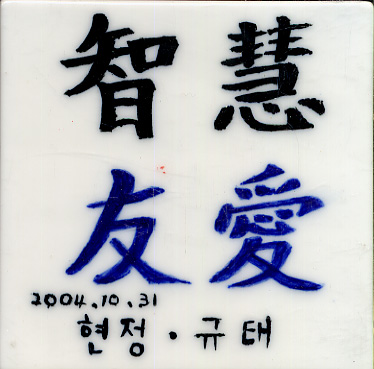 智慧
友愛
2004.10.31
현정·규태